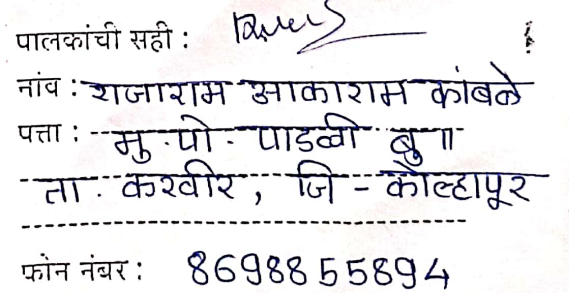 पालकांची सही :
नांव : राजाराम आकाराम कांबळे
पत्ता : मु. पो. पाडळी बु॥
ता. करवीर, जि - कोल्हापूर
फोन नंबर : 8698855894